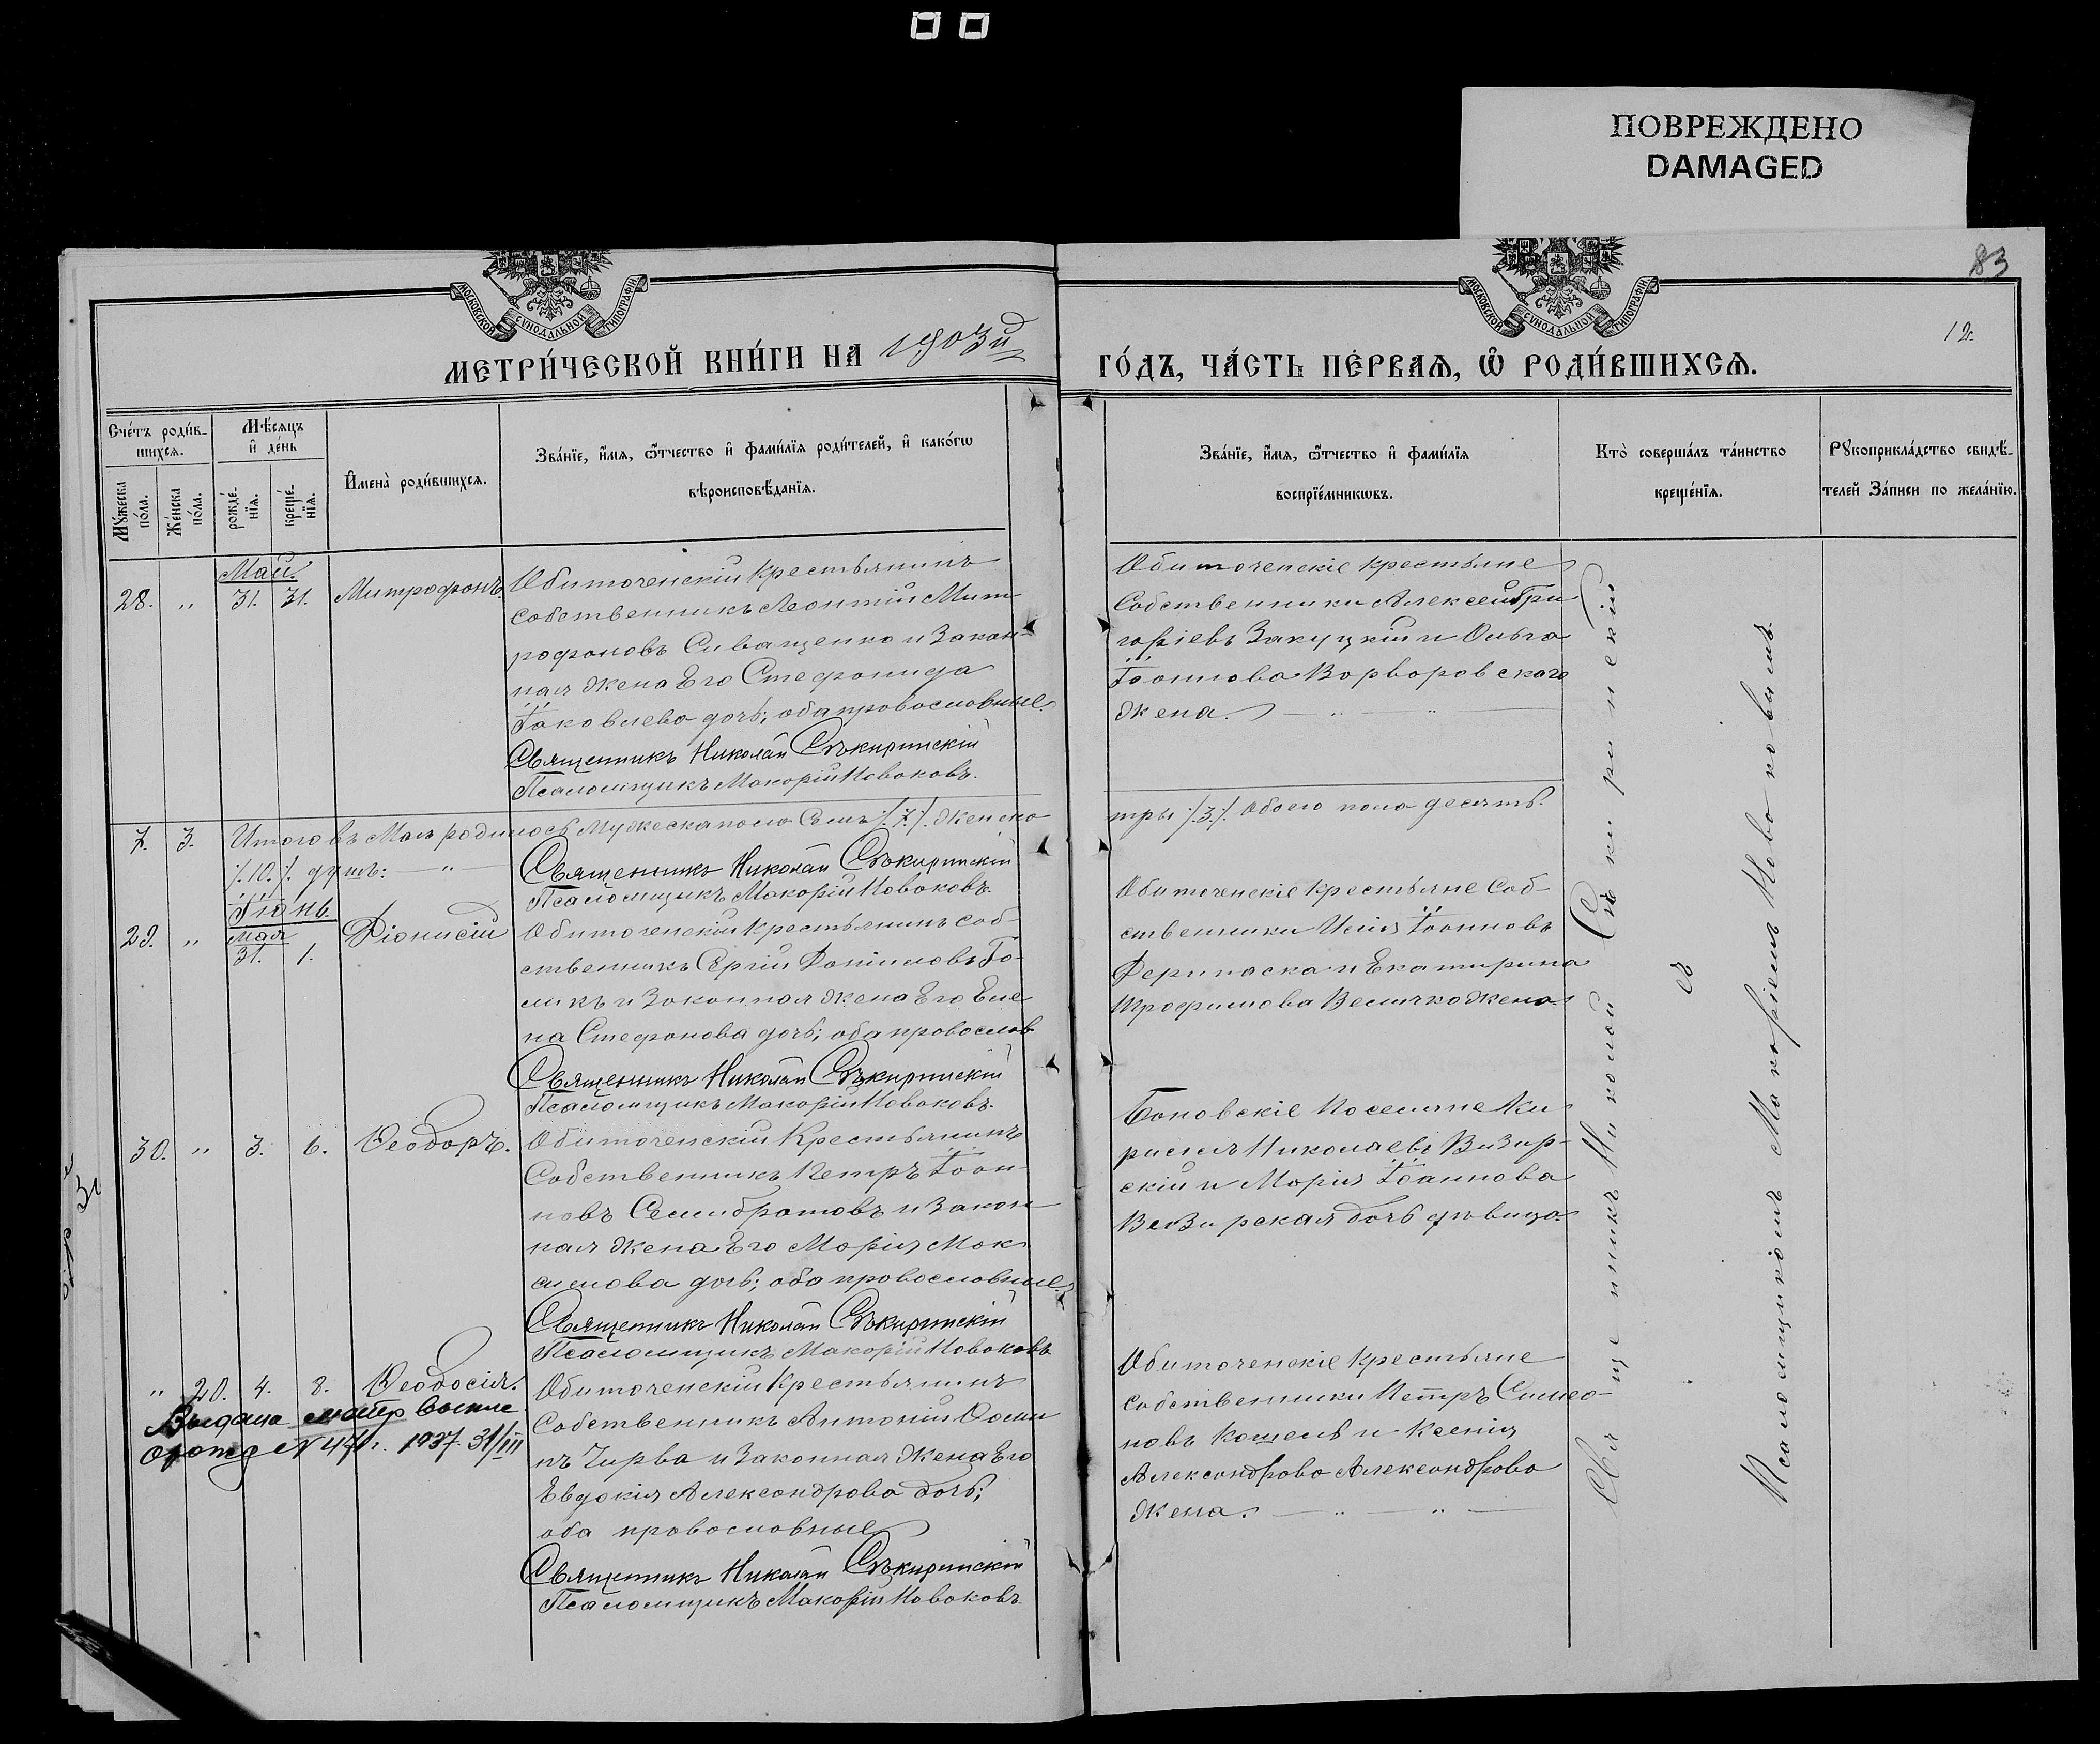 ПОВРЕЖДЕНО
DAMAGED
83
12.
МОСКОВСКОЙ СѴНОДАЛЬНОЙ ТИПОГРАФІИ
МОСКОВСКОЙ СѴНОДАЛЬНОЙ ТИПОГРАФІИ
МЕТРИ́ЧЕСКОЙ КНИ́ГИ НА 1903й
ГО́ДЪ, ЧА́СТЬ ПЕ́РВАѦ, Ѡ҆ РОДИ́ВШИХСѦ.
Сче́тъ роди́в-
шихсѧ.
Мꙋ́жеска по́ла.
Же́нска по́ла.
Мѣ́сѧцъ
и҆ де́нь
рожде́-
нїѧ.
креще́-
нїѧ.
И҆мена̀ роди́вшихсѧ.
Зва́нїе, и҆́мѧ, ѻ҆́тчество и҆ фами́лїѧ роди́телей, и҆ како́гѡ
вѣроисповѣ́данїѧ.
Зва́нїе, и҆́мѧ, ѻ҆́тчество и҆ фами́лїѧ
воспрїе́мникѡвъ.
Кто̀ соверша́лъ та́инство
креще́нїѧ.
Рꙋкоприкла́дство свидѣ́-
телей За́писи по жела́нїю.
Май.
28. „ 31. 31. Митрофанъ.
Обиточенскій Крестьянинъ
Собственникъ Леонтій Мит
рофановъ Сиващенко и Закон-
ная жена Его Стефанида
Іаковлева дочь; оба православные.
Священникъ Николай Съкиринскій
Псаломщикъ Макорій Новаковъ.
Обиточенскіе крестьяне
Собственники Алексей Гри
горіевъ Закуцкій и Ольга
Іоаннова Ворворовскаго
жена. — „ — „ —
7. 3. Итого въ Маѣ родилось Мужеска пола Семь ⁒7⁒. Женска
три ⁒3⁒ Обоего пола десять.
⁒10⁒. душъ: — „ —
Священникъ Николай Съкиринскій
Псаломщикъ Макорій Новаковъ.
Іюнь.
29. „ мая 31. 1. Діонисій
Обиточенскій Крестьянинъ Соб-
ственникъ Сергій Даниловъ Го-
ликъ и Законная жена Его Еле
на Стефанова дочь; оба православ
Священникъ Николай Съкиринскій
Псаломщикъ Макорій Новаковъ.
Обиточенскіе Крестьяне Соб-
ственники Илія Іоанновъ
Дерипаска и Екатирина
Трофимова Величко жена.
30. „ 3. 6. Ѳеодоръ.
Обиточенскій Крестьянинъ
Собственникъ Петръ Іоан-
новъ Семибратовъ и Закон-
ная жена Его Марія Мак
симова дочь; оба православные.
Священникъ Николай Съкиринскій
Псаломщикъ Макорій Новаковъ
Бановскіе Поселяне Ки
рилл Николаевъ Визир-
скій и Марія Іоаннова
Везирская дочь дѣвица.
„ 20. 4. 8. Ѳеодосія.
Выдана
N 471 г. 1937. 31/III
Обиточенскій Крестьянинъ
Собственникъ Антоній Ѳоми
нъ Чирва и Законная Жена Его
Евдокія Александрова дочь;
оба православные
Священникъ Николай Съкиринскій
Псаломщикъ Макорій Новаковъ
Обиточенскіе Крестьяне
Собственники Петръ Симео-
новъ Кошель и Ксенія
Александрова Александрова
жена. — „ — „ —
Священникъ Николай Съкиринскій
съ
Псаломщикомъ Макоріемъ Новаковымъ.